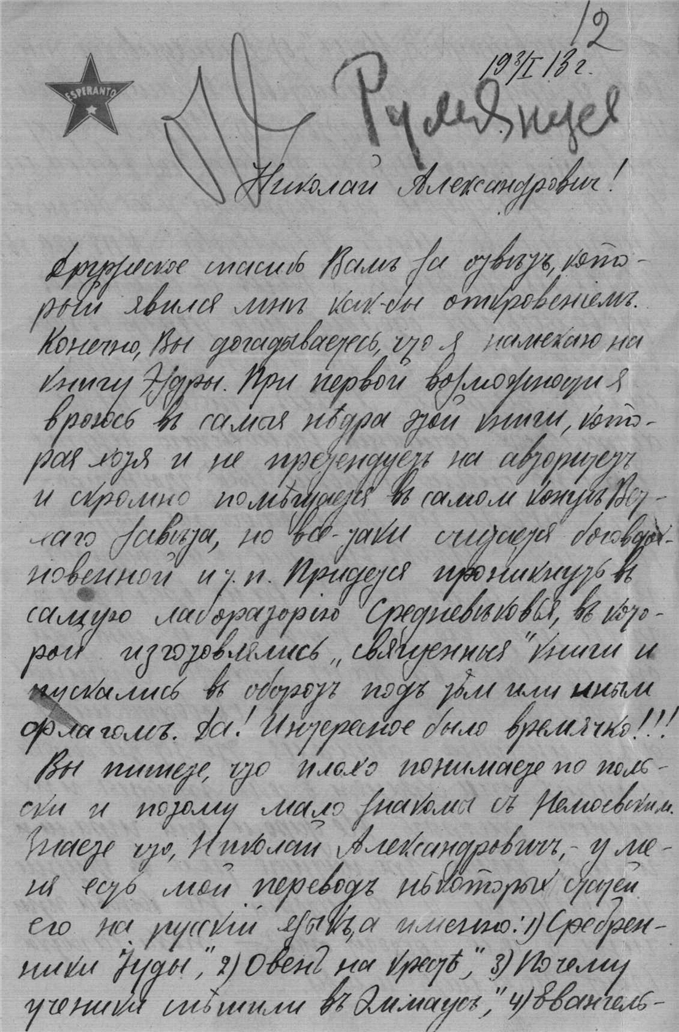 12
19 3/I 13 г.
ESPERANTO
Румянцев
Николай Александрович!
Дружеское спасибо Вамъ за отвѣтъ, кото-
рый явился мнѣ как-бы откровеніемъ.
Конечно, Вы догадываетесь, что я намекаю на
книгу Эздры. При первой возможности я
вроюсь въ самыя нѣдра этой книги, кото-
рая хотя и не претендуетъ на авторитетъ
и скромно помѣщается въ самом концѣ Вет-
хаго завѣта, но все-таки считается боговдох-
новенной и т.п. Придется проникнуть въ
самую лабораторію Средневѣковья, въ кото-
рой изготовлялись „священныя" книги и
пускались въ оборотъ подъ тѣм или иным
флагомъ. Да! Интересное было времячко!!!
Вы пишете, что плохо понимаете по поль-
ски и потому мало знакомы съ Немоевским.
Знаете что, Николай Александровичъ, - у ме-
ня есть мой переводъ нѣкоторых статей
его на русскій языкъ, а именно: 1) Сребрен-
ники Іуды", 2) Овенъ на крестѣ", 3) Почему
ученики спѣшили въ Эммаусъ", 4) Евангель-